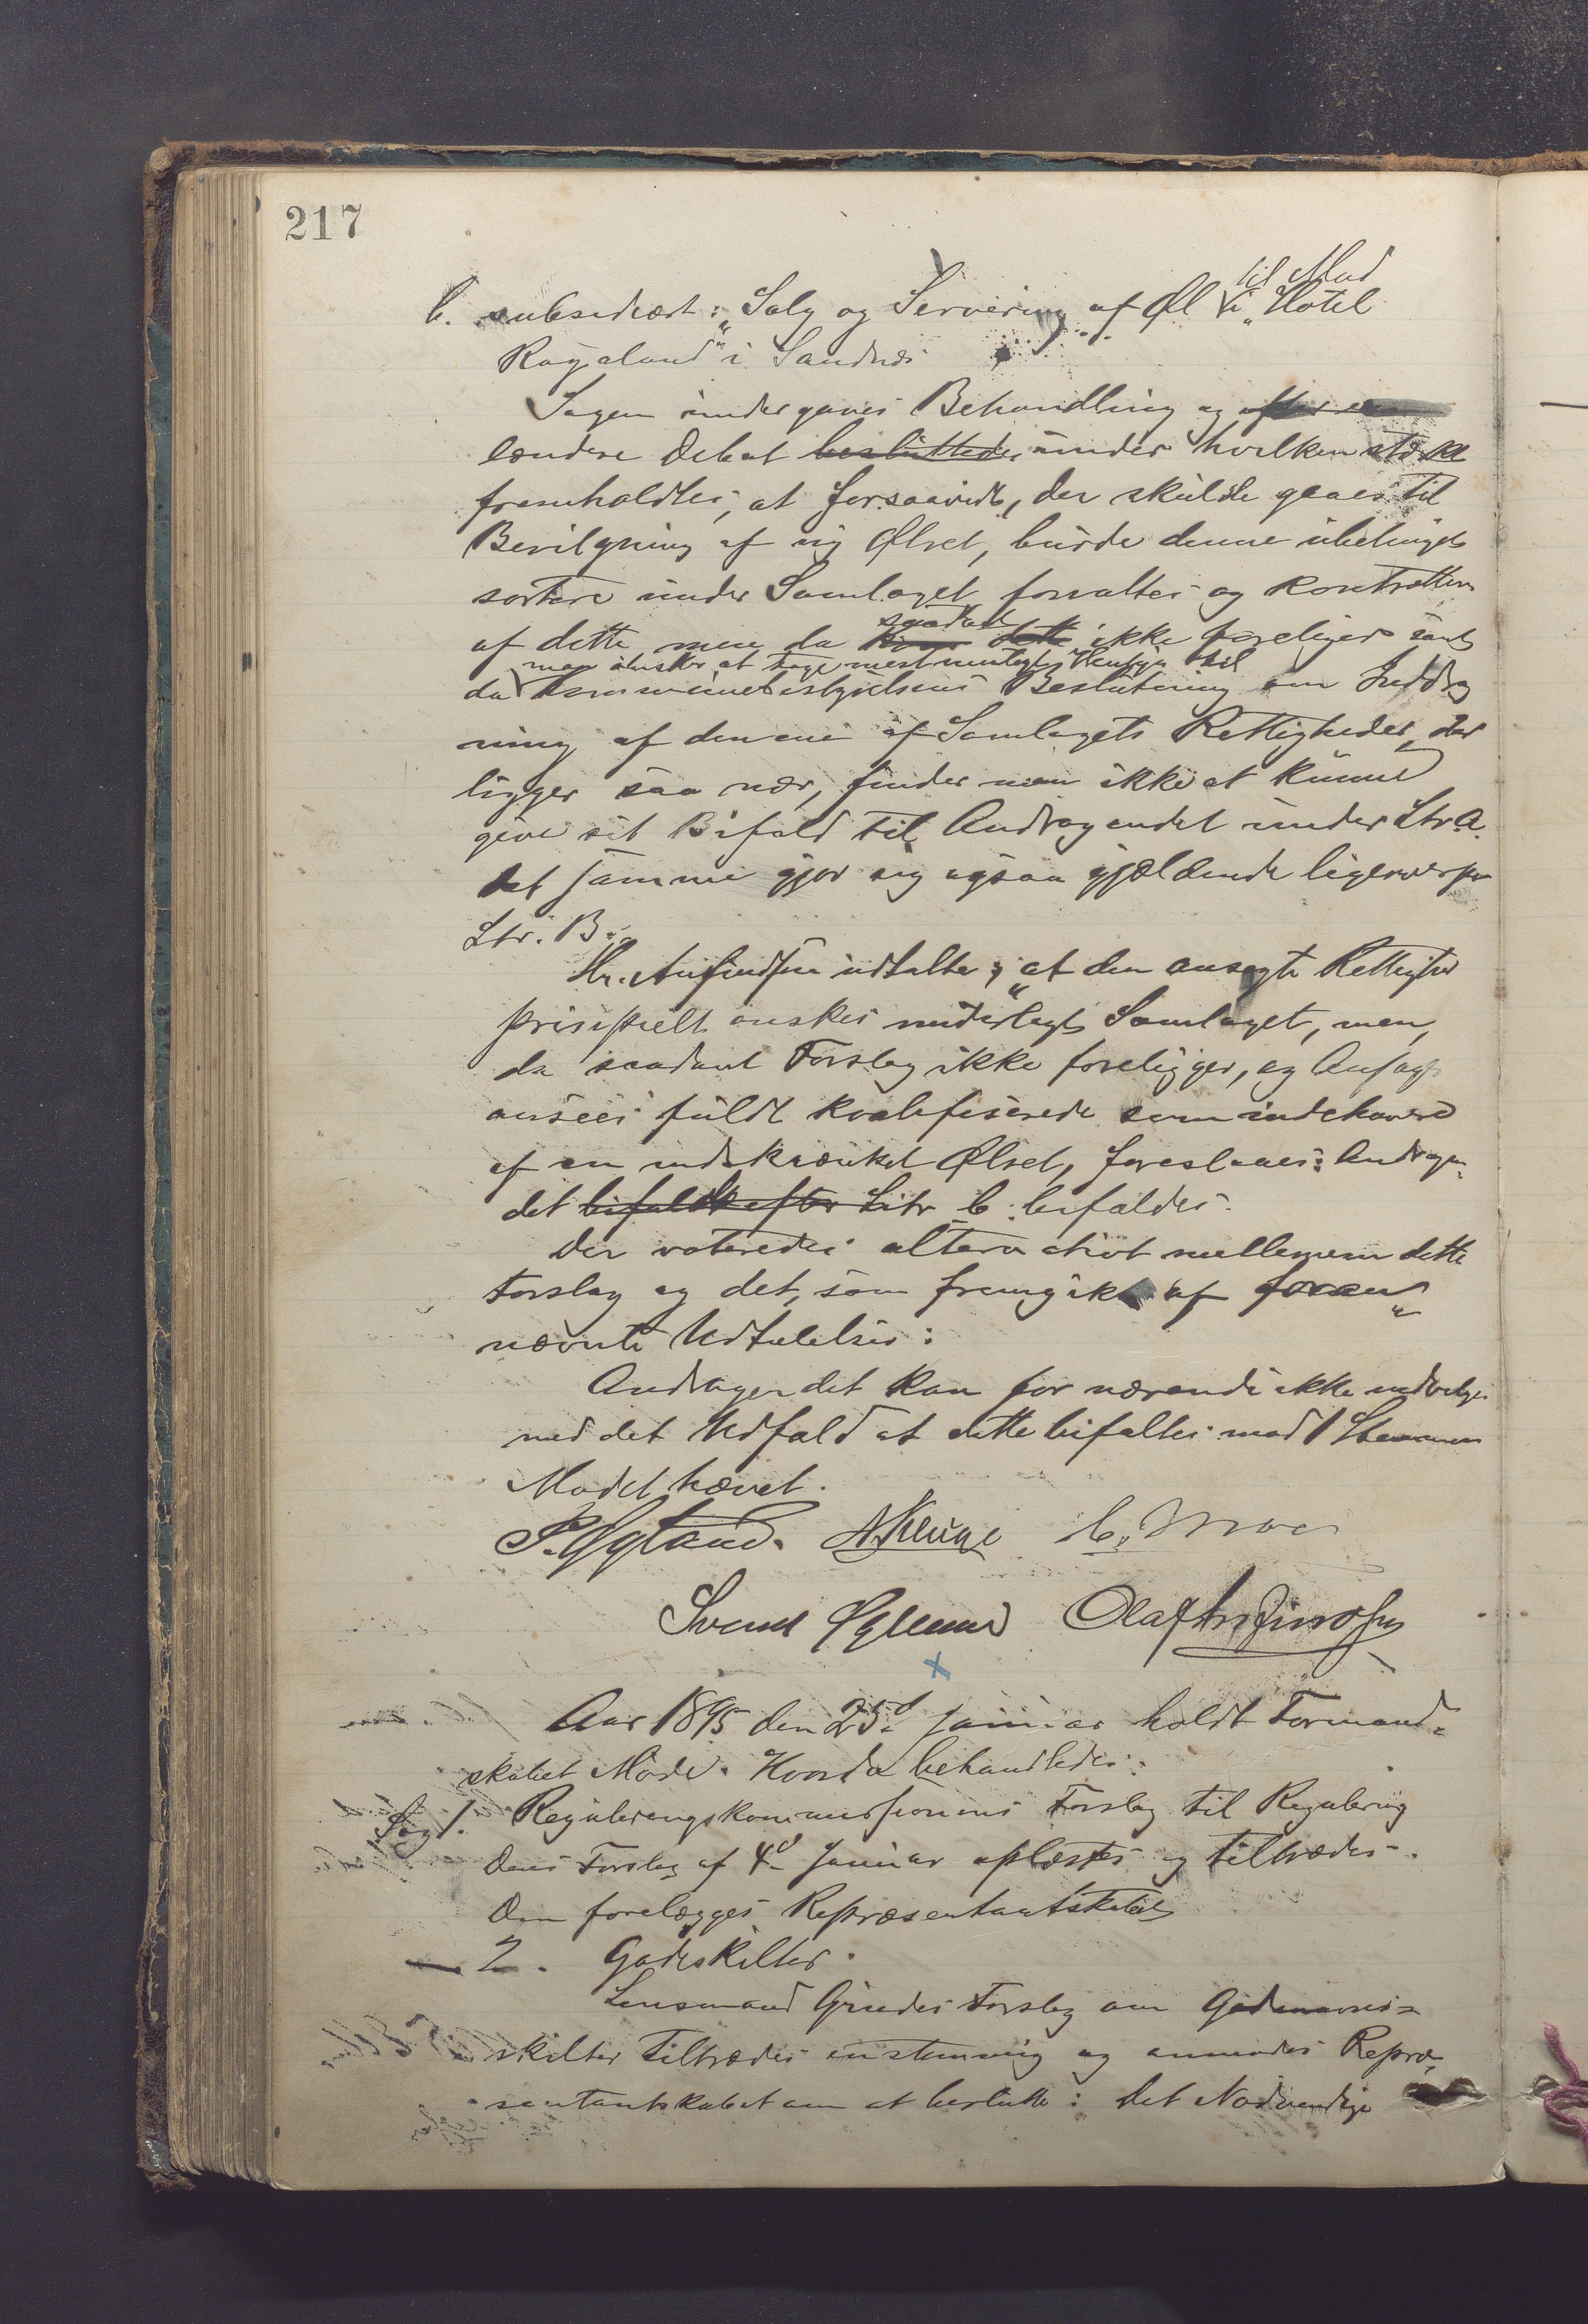 217
til Mad
b. subsidiært: "Salg og Servering af Øl i "Hotel
Rogaland" i Sandnæs
Sagen undergaves Behandling og efter en
længere Debat besluttedes under hvilken
fremholdtes, at forsaavidt, der skulde gaaes til
Bevilgning af ny Ølret, burde denne ubetinget
sortere under Samlaget forvaltes og kontrolleres
saadant
af dette, men da dette ikke foreligger samt
man ønsker at tage mest muligt Hensyn til
da Kommunebestyrelsens Beslutning om Inddrag
ning af den ene af Samlagets Rettigheder, der
ligger saa nær, finder man ikke at kunne
give sit Bifald til Andragendet under Litr. A.
det samme gjør sig ogsaa gjældende ligeoverfor
Litr. B.
Hr. Anfindsen udtalte; "at den ansøgte Rettighed
prinsipielt ønskes underlagt Samlaget, men,
da saadant Forslag ikke foreligger, og Ansøg.
ansees fuldt kvalifiserede som indehavere
af en indskrænket Ølret, foreslaaes: Andragen-
det bifaldt efter Litr b. bifaldes.
Der voteredes alternativt mellem dette
Forslag og det, som fremgik af foran"
nævnte Udtalelse:
Andragendet kan for nærende ikke
med det Udfald at dette bifaltes mod 1 Stemme
Mødet hævet.
Svend Olaf Anfindsen
Aar 1895 den 25d Januar holdt Formand-
skabet Møde. Hvorda behandledes:
Sag 1. Reguleringskommissionens Forslag til Regulering
Dens Forslag af 4d Januar oplæstes og tiltrædes.
Den forelægges Repræsentantskabet
— 2. Gadeskilter.
Lensmand Forslag om Gadenavns-
skilter tiltrædes enstemmig og anmodes Repræ-
sentantskabet om at beslutte: Det Nødvendige